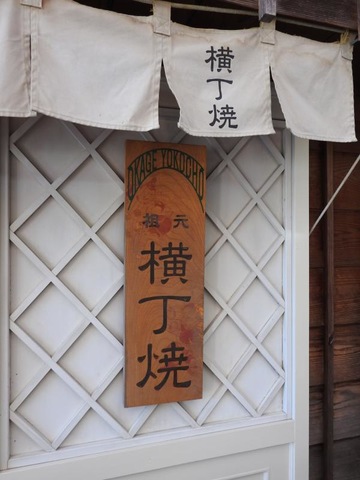 横丁焼
OKAGE YOKOCHO
元祖
横丁焼